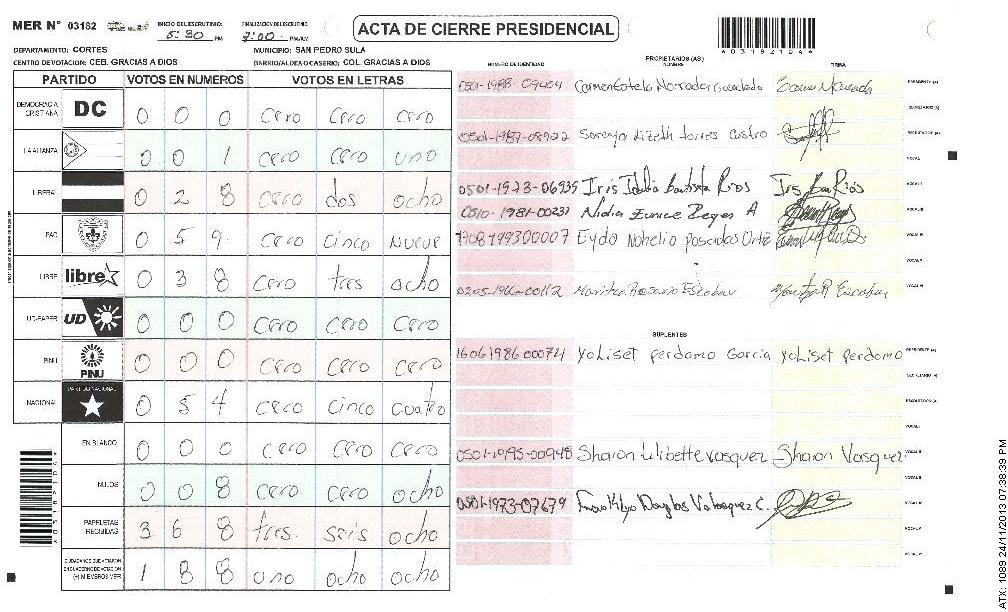 MER N° 03182
INICIO DEL ESCRUTINIO:
5:30 PM
FINALIZACION DEL ESCRUTINIO:
7:00 PM/AM
ACTA DE CIERRE PRESIDENCIAL
*03182104*
DEPARTAMENTO: CORTES
MUNICIPIO: SAN PEDRO SULA
CENTRO DE VOTACION: CEB. GRACIAS A DIOS
BARRIO/ALDEA O CASERIO: COL. GRACIAS A DIOS
PARTIDO VOTOS EN NUMEROS VOTOS EN LETRAS
DEMOCRACIA CRISTIANA DC 0 0 0 cero cero cero
LA ALIANZA 0 0 1 cero cero uno
LIBERAL 0 2 8 cero dos ocho
PAC 0 5 9 cero cinco nueve
LIBRE libre 0 3 8 cero tres ocho
UD-FAPER UD 0 0 0 cero cero cero
PINU PINU 0 0 0 cero cero cero
NACIONAL PARTIDO NACIONAL 0 5 4 cero cinco cuatro
EN BLANCO 0 0 0 cero cero cero
NULOS 0 0 8 cero cero ocho
PAPELETAS RECIBIDAS 3 6 8 tres seis ocho
CIUDADANOS QUE VOTARON EN CUADERNO DE VOTACION (+) MIEMBROS MER 1 8 8 uno ocho ocho
PROPIETARIOS (AS)
NUMERO DE IDENTIDAD NOMBRE FIRMA
PRESIDENTE (A)
SECRETARIO (A)
0501-1987-08922 Torres Castro ESCRUTADOR (A)
VOCAL I
0501-1973-06939 Iris Idalia Bautista Rios Iris Bau Rios
0510-1981-00237 Nidia Eunice Reyes A
Eyda Nohelia Poscadas Ortiz
0205-1966-00112 Maritza Rosario Escobar
SUPLENTES
1606198600074 Yoliset perdomo Garcia yoliset perdomo PRESIDENTE (A)
SECRETARIO (A)
ESCRUTADOR (A)
VOCAL I
0501-1995-00948 Sharon Lilibette vasquez Sharon Vasquez
0501-1973-07679 Douglas Velasquez C.
ATX: 1089 24/11/2013 07:38:39 PM